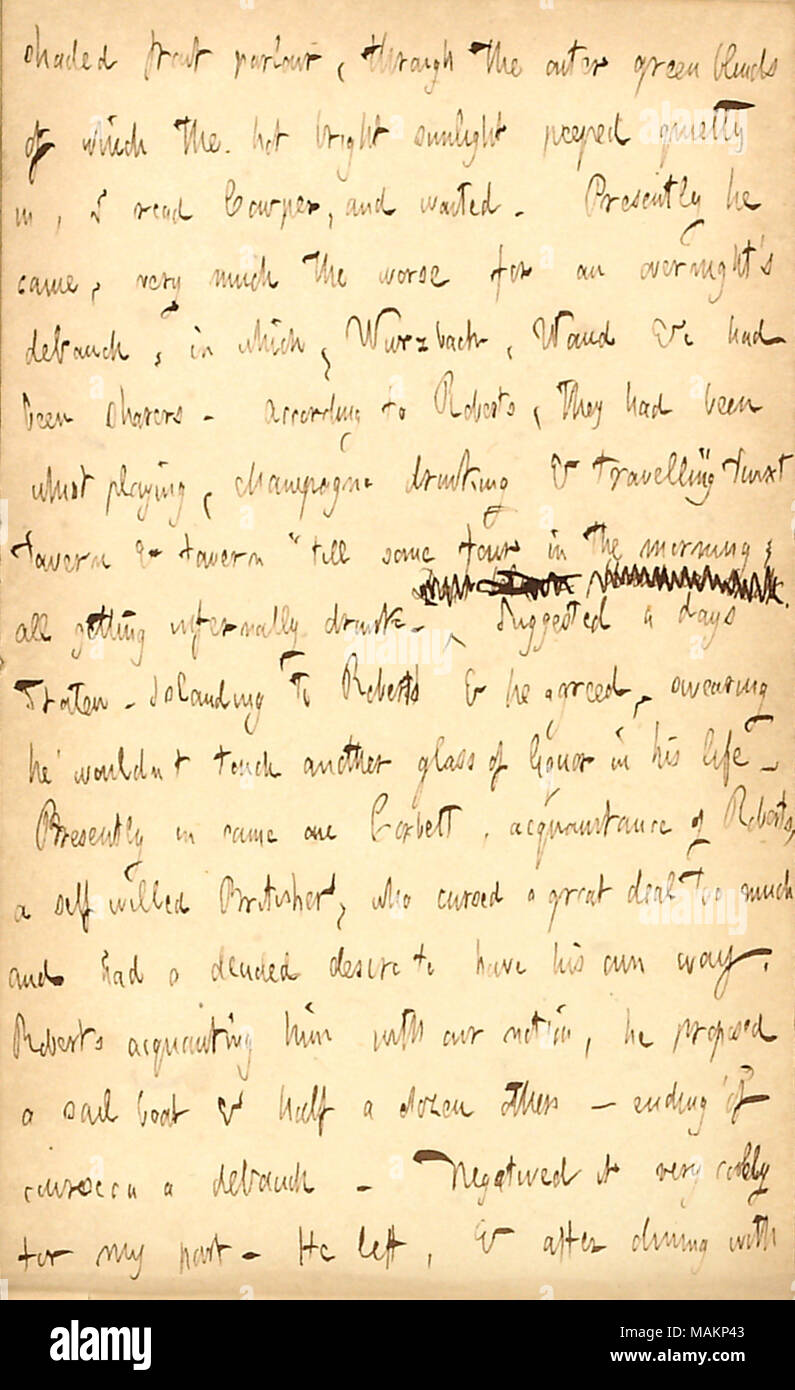 shaded front parlour, through the outer green blinds
of which the hot bright sunlight peeped quietly
in, I read Cowper, and waited. Presently he
came, very much the worse for an overnight's
debauch, in which, Wurzbach, Waud &c had
been sharers. According to Roberts, they had been
whist playing, champagne drinking & travelling twixt
tavern & tavern till some four in the morning;
all getting infernally drunk. Suggested a days
Staten-Islanding to Roberts & he agreed, swearing
he wouldn't touch another glass of liquor in his life.
Presently in came one Corbett, acquaintance of Roberts,
a self willed Britisher, who cursed a great deal too much
and had a decided desire to have his own way.
Roberts acquainting him with our notion, he proposed
a sail boat & half a dozen others - ending of
course in a debauch. Negatived it very coolly
for my part. He left, & after dining with
alamy
Image ID: MAKP43
www.alamy.com